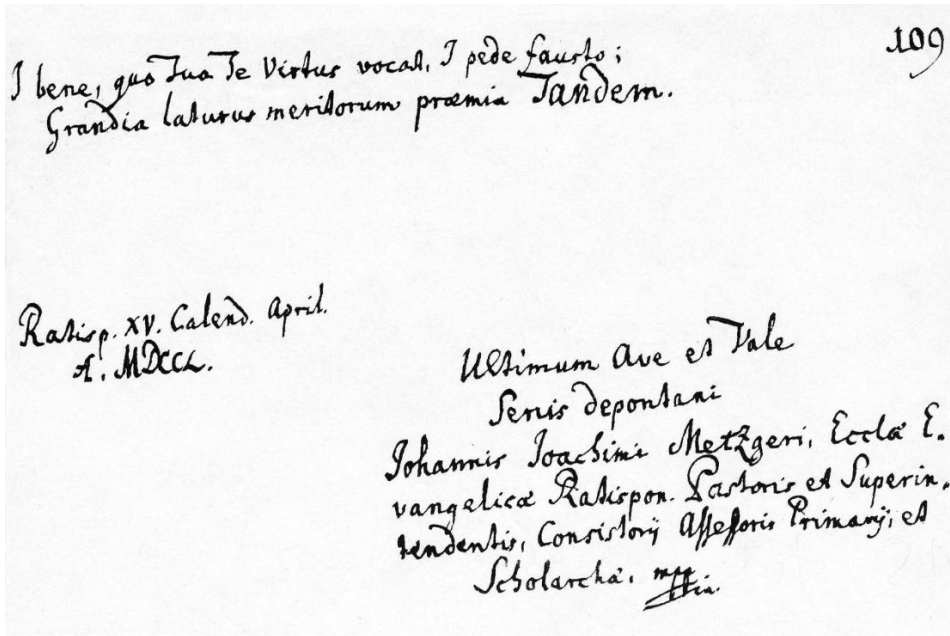 109
I bene, quo Tua Te Virtus vocat, I pede fausto;
Grandia laturus meritorum præmia Tandem.
Ratisp. XV. Calend. April.
A. MDCCL.
Ultimum Ave et Vale
Senis depontani
Johannis Joachimi Metzgeri, Ecclæ E-
vangelicæ Ratispon. Pastoris et Superin-
tendentis, Consistorij Assessoris Primarij, et
Scholarchæ. mppria.